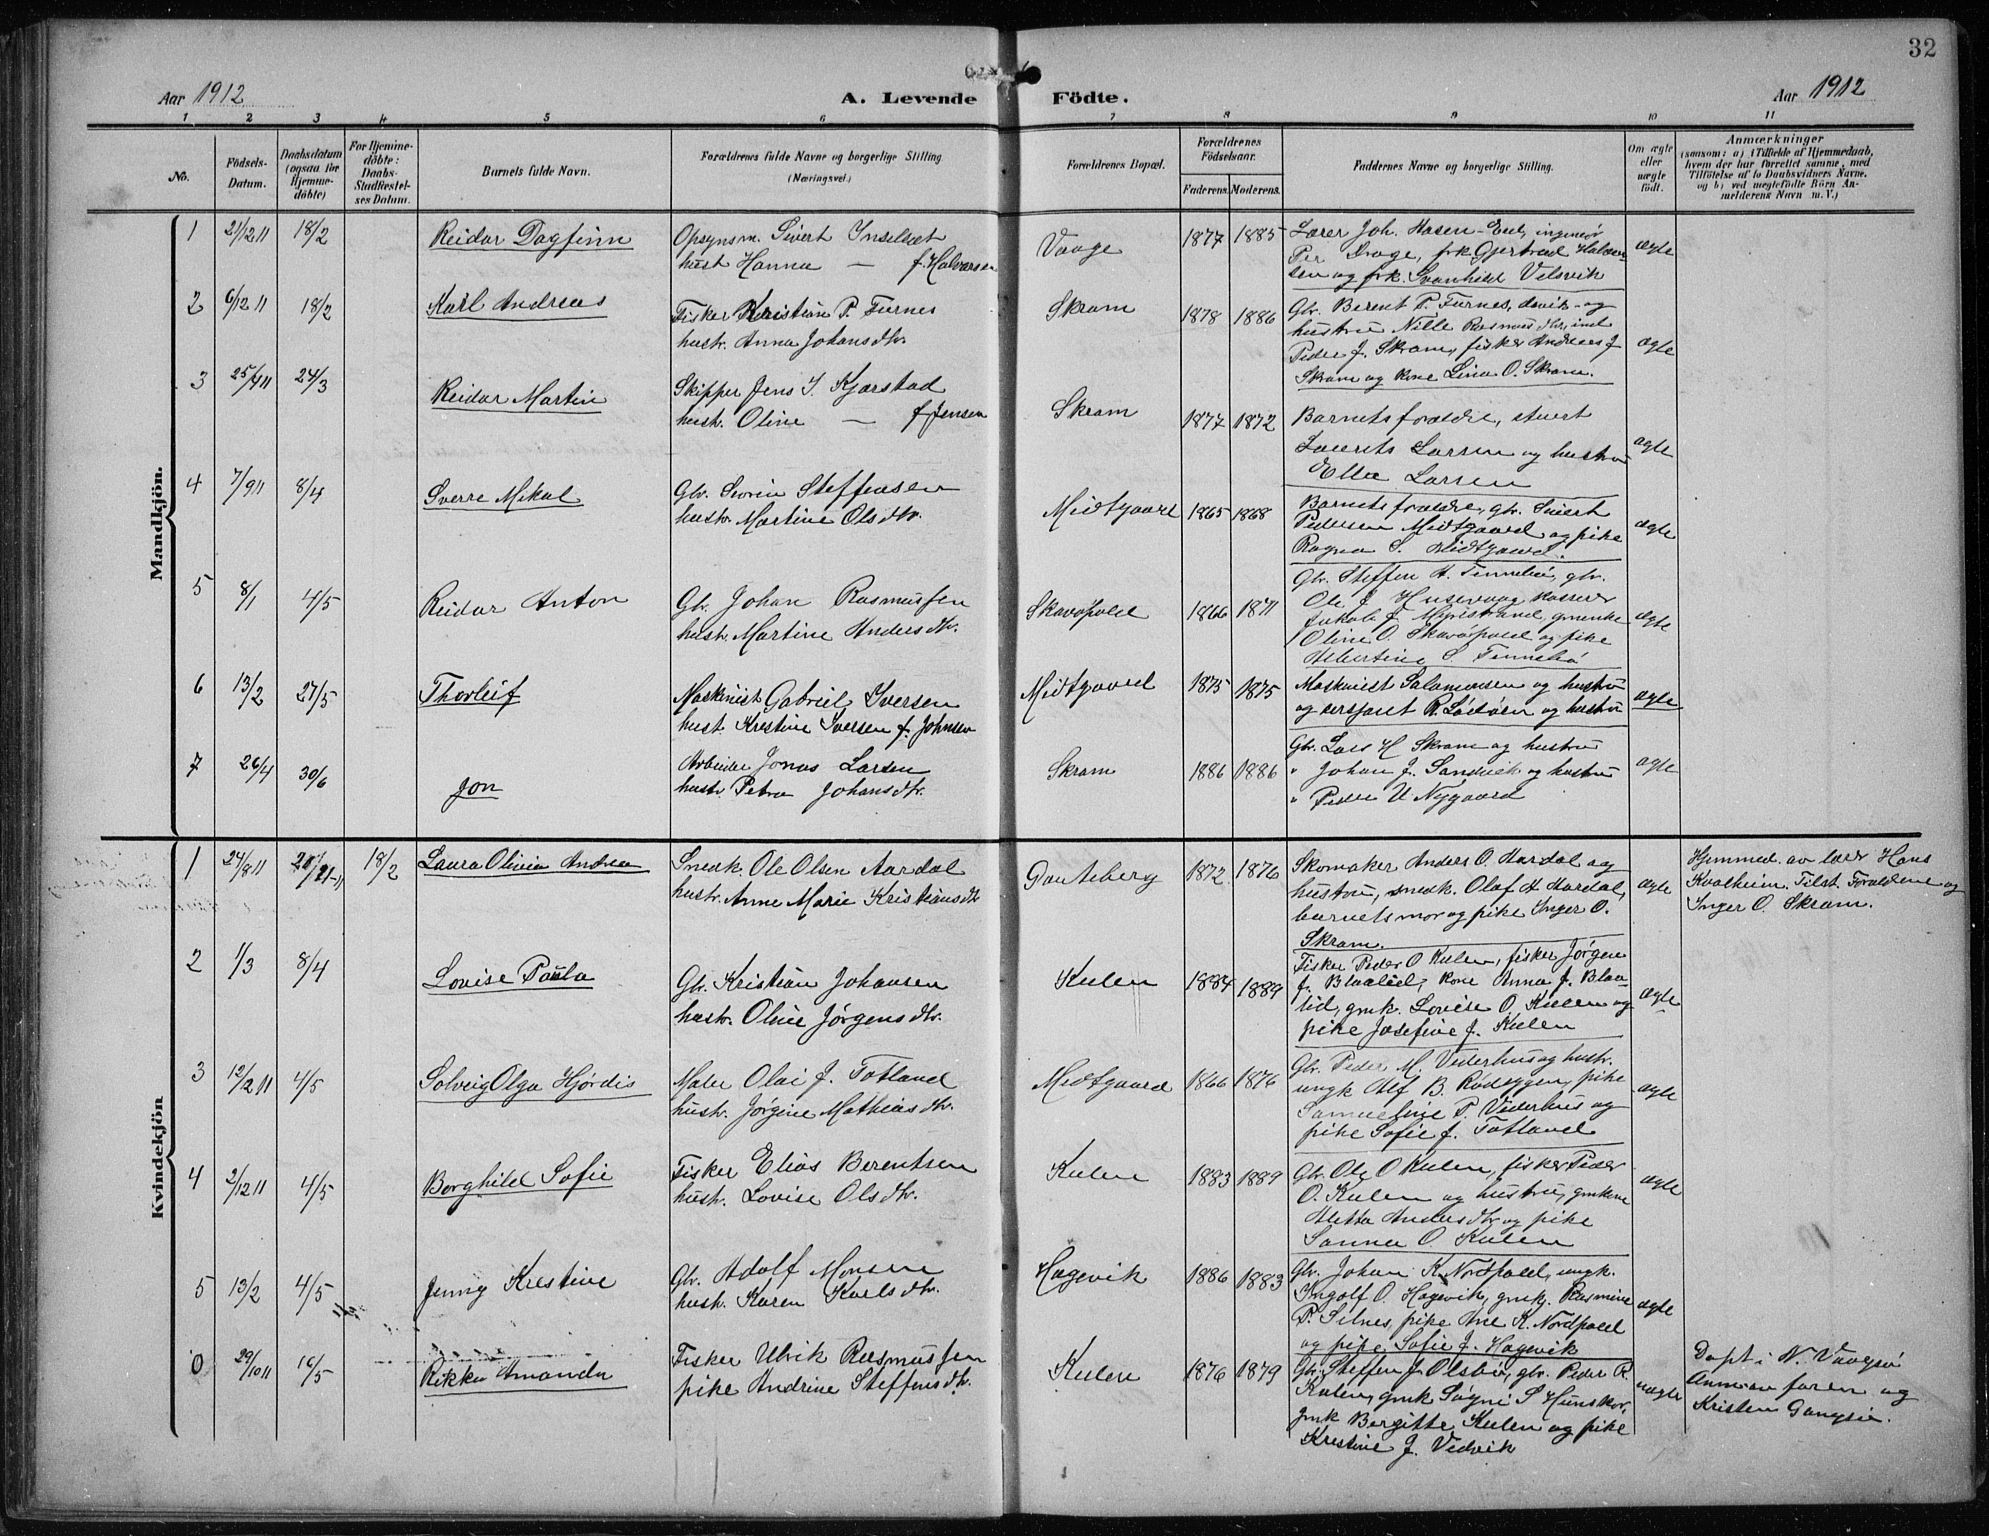 32
Aar 1912
A. Levende Födte.
Aar 1912
1 2 3 4 5 6 7 8 9 10 11
No.
Födsels-Datum.
Daabsdatum (ogsaa for Hjemmedöbte)
For Hjemmedöbte: Daabs-Stadfæstelses Datum.
Barnets fulde Navn.
Forældrenes fulde Navne og borgerlige Stilling (Næringsvei.)
Forældrenes Bopæl.
Forældrenes Födselsaar.
Faderens. Moderens.
Faddernes Navne og borgerlige Stilling.
Om ægte eller uægte födt.
Anmærkninger
(saasom: a) i Tilfælde af Hjemmedaab, hvem der har forrettet samme, med Tilföielse af to Daabsvidners Navne. og b) ved uægtefödte Börn Anmelderens Navn m. V.)
Mandkjön.
1 21/12 11 18/2 Reidar Dagfinn
Opsynsm. Sivert Inselset
hust Hanna — f. Halvorsen
Vaage 1877 1885
Lærer Joh. Hasen-Eid, ingeniør
Per Drage, frk Gjertrud Halvor-
sen og frk. Svanhild Velsvik
ægte
2 6/12 11 18/2 Karl Andreas
Fisker Kristian P. Furnes
hustr. Anna Johansdtr.
Skram 1878 1886
Gbr. Berent P. Furnes,
hustru Nille Rasmusdtr, inst
Peder J. Skram, fisker Andreas J
Skram og kone Lina O. Skram.
ægte
3 24/3 Reidar Martin
Skipper Jens J. Kjørstad
hustr. Oline — f Jensen
Skram 1877 1872
Barnets forældre, stuert
Laurits Larsen og hustru
Ella Larsen
ægte
4 7/9 11 8/4 Sverre Mikal
Gbr. Sevrin Steffensen
hustr. Martine Olsdtr.
Midtgaard 1865 1868
Barnets forældre, gbr. Sivert
Pedersen Midtgaard og pike
Ragna S. Midtgaard.
ægte
5 8/1 4/5 Reidar Anton
Gbr. Johan Rasmussen
hustr. Martine Andersdtr.
Skavøpold 1866 1871
Gbr. Steffen A. Tennebø, gbr.
Ole J. Husevaag kasserer
Jakob J. gmenke
Oline O. Skavøpold og pike
Albertine S. Tennebø
ægte
6 13/2 27/5 Thorleif
Maskinist Gabriel Iversen
hust Kristine Iversen f. Johnsen
Midtgaard 1875 1875
Maskinist Salamonsen og hustru
og sersjant R. Løedøen og hustru
ægte
7 26/4 30/6 Jon
Arbeider Jonas Larsen
hustr Petra Johansdtr.
Skram 1886 1886
Gbr. Lars H Skram og hustru
" Johan J. Sandvik og hustru
" Peder U. Nygaard
ægte
Kvindekjön
1 24/8 11 18/2 Laura Olivia Andrea
Snedk. Ole Olsen Aardal
hustr. Anne Marie Kristiansdtr
Gautsberg 1872 1876
Skomaker Anders O. Aardal og
hustru, snedk. Olaf A Aardal,
barnets mor og pike Inger O.
Skram.
ægte
Hjemmed. av lærer Hans
Kvalheim. Tilst. Forældrene og
Inger O. Skram.
2 1/3 8/4 Lovise Paula
Gbr. Kristian Johansen
hustr. Oline Jørgensdtr.
Kulen 1884 1889
Fisker Peder O Kulen, fisker Jørgen
J. Blaalid, kone Anna J. Blaa-
lid, gmk. Lovise O. Kulen og
pike Josefine J. Kulen
ægte
3 12/2 11 4/5 Solveig Olga Hjørdis
Maler Olai J. Totland
hustr. Jørgine Mathiasdtr.
Midtgaard 1866 1876
Gbr. Peder M. Vederhus og hustr.
ungk Alf B. Rødseggen, pike
Samueline P. Vederhus og
pike Sofie J. Totland
ægte
4 2/12 11 4/5 Borghild Sofie
Fisker Elias Berentsen
hustr. Lovise Olsdtr.
Kulen 1883 1889
Gbr. Ole O Kulen, fisker Peder
O. Kulen og hustru, gmkone
Aletta Andersdtr og pike
Sanna O Kulen
ægte
5 13/2 4/5 Jenny Kristine
Gbr. Adolf Monsen
hustr. Karen Karlsdtr.
Hagevik 1886 1883
Gbr. Johan K Nordpoll, ungk.
Ingolf O. Hagevik, gmk. Rasmine
P. Silnes, pike Ane K. Nordpoll
og pike Sofie J. Hagevik
ægte
29/10 11 16/5 Rikka Amanda
Fisker Ulrik Rasmussen
pike Andrine Steffensdtr.
Kulen 1876 1879
Gbr. Steffen J Olsbø, gbr. Peder R
Kulen, gmk Søgni S Hunskor,
gmk Bergitte Kulen og pike
Kristine J. Vedvik
uægte
Døpt i N. Vaagsø
Anm av faren og
Kristen Gangsø.